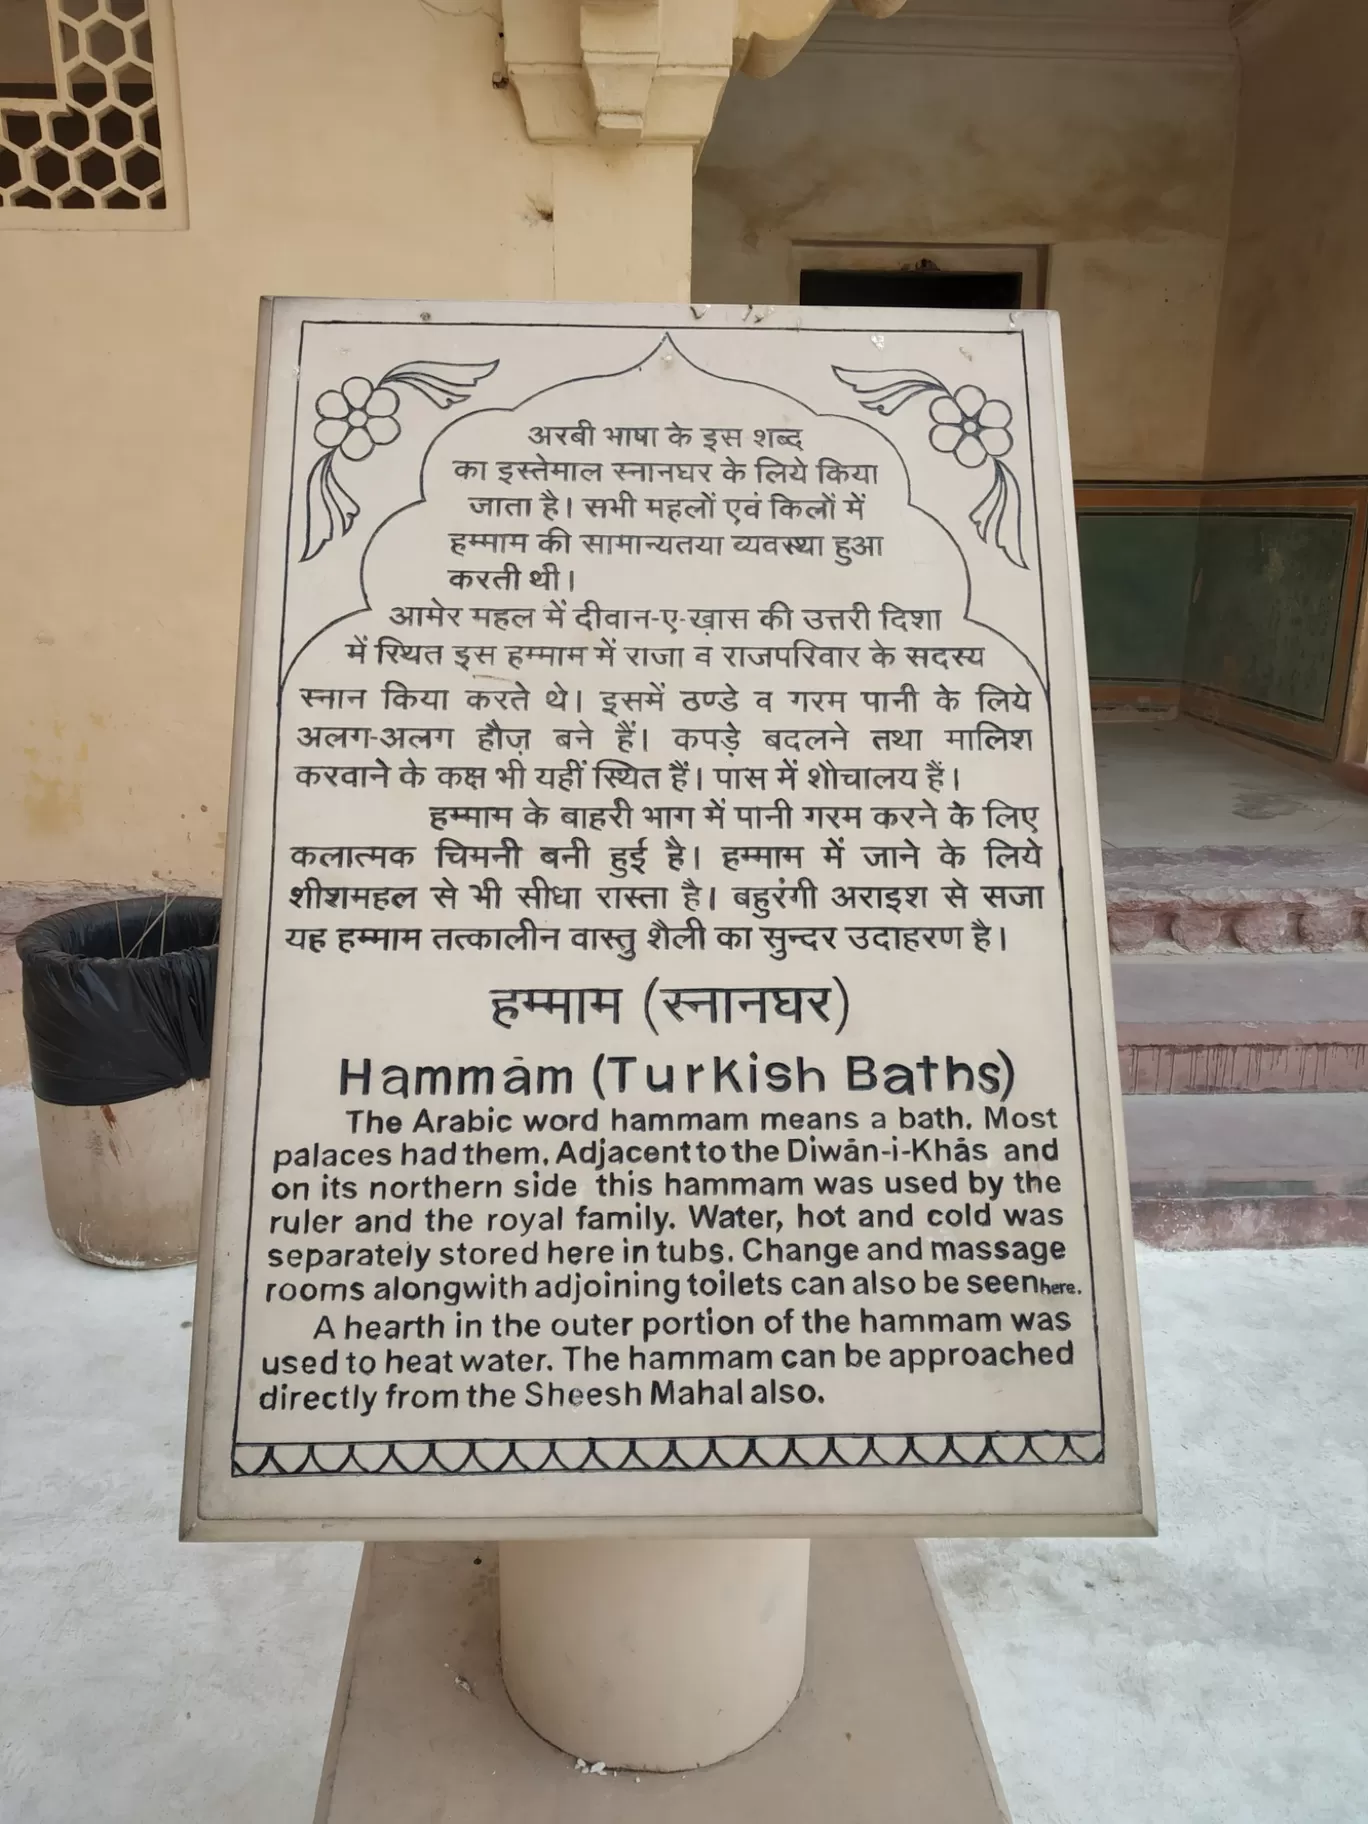 अरबी भाषा के इस शब्द
का इस्तेमाल स्नानघर के लिये किया
जाता है। सभी महलों एवं किलों में
हम्माम की सामान्यतया व्यवस्था हुआ
करती थी।
आमेर महल में दीवान-ए-ख़ास की उत्तरी दिशा
में स्थित इस हम्माम में राजा व राजपरिवार के सदस्य
स्नान किया करते थे। इसमें ठण्डे व गरम पानी के लिये
अलग-अलग हौज़ बने हैं। कपड़े बदलने तथा मालिश
करवाने के कक्ष भी यहीं स्थित हैं। पास में शौचालय हैं।
हम्माम के बाहरी भाग में पानी गरम करने के लिए
कलात्मक चिमनी बनी हुई है। हम्माम में जाने के लिये
शीशमहल से भी सीधा रास्ता है। बहुरंगी अराइश से सजा
यह हम्माम तत्कालीन वास्तु शैली का सुन्दर उदाहरण है।
हम्माम (स्नानघर)
Hammām (Turkish Baths)
The Arabic word hammam means a bath. Most
palaces had them. Adjacent to the Diwān-i-Khās and
on its northern side this hammam was used by the
ruler and the royal family. Water, hot and cold was
separately stored here in tubs. Change and massage
rooms alongwith adjoining toilets can also be seen here.
A hearth in the outer portion of the hammam was
used to heat water. The hammam can be approached
directly from the Sheesh Mahal also.